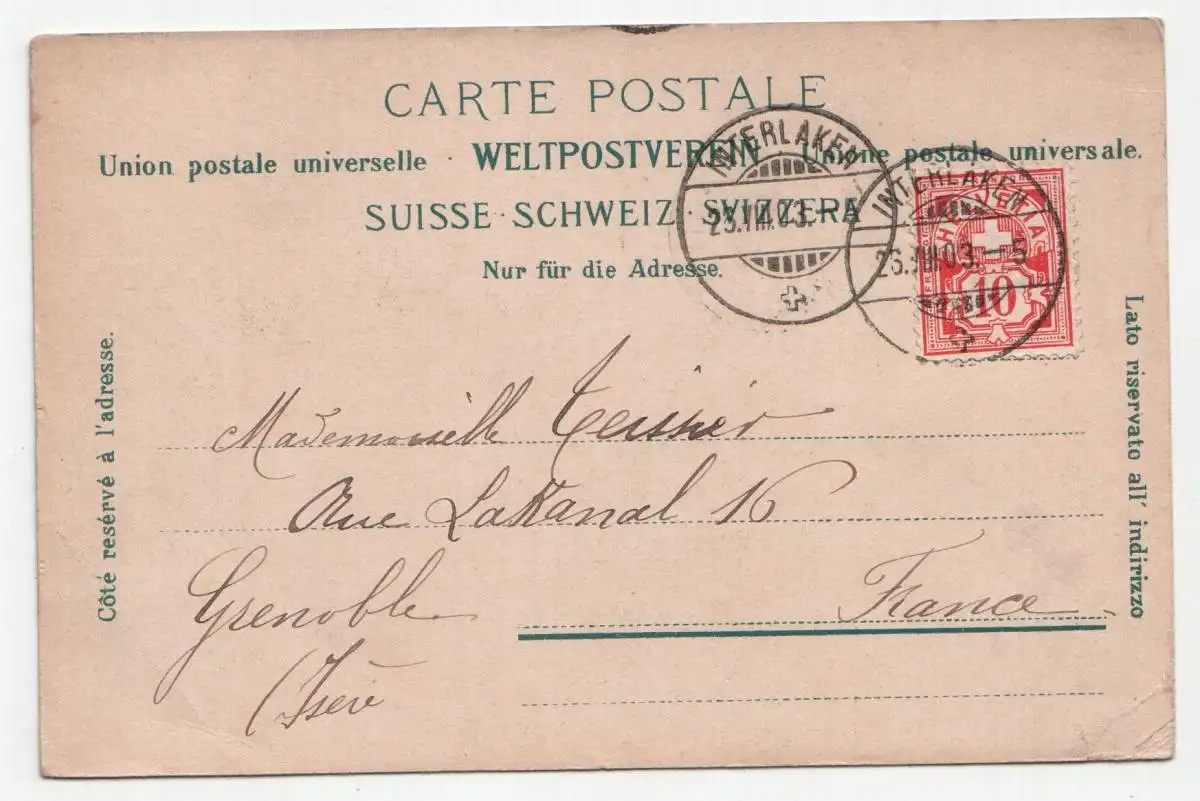 CARTE POSTALE
Union postale universelle · WELTPOSTVEREIN · Unione postale universale.
SUISSE · SCHWEIZ · SVIZZERA
Nur für die Adresse.
INTERLAKEN
INTERLAKEN
26.VIII.03.–5
HELVETIA
10
Côté resérvé à l'adresse.
Lato riservato all' indirizzo
Mademoiselle Teissier
Rue LaKanal 16
Grenoble France
(Isère